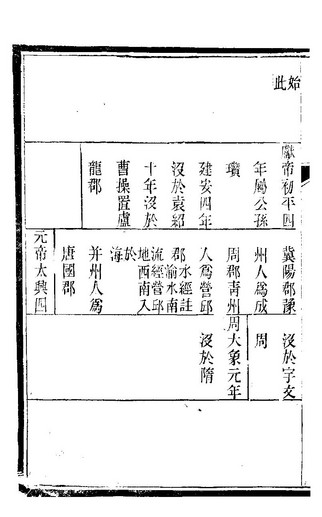 始
此
獻帝初平四
年屬公孫
瓚
建安四年
沒於袁紹
十年沒於
曹操置盧
龍郡
冀陽郡豫
州人爲成
周郡青州
人爲營邱
郡水經註
渝水南
流經營邱
地西南入
於
海
并州人爲
唐國郡
元帝太興四
沒於宇文
周
周大象元年
沒於隋